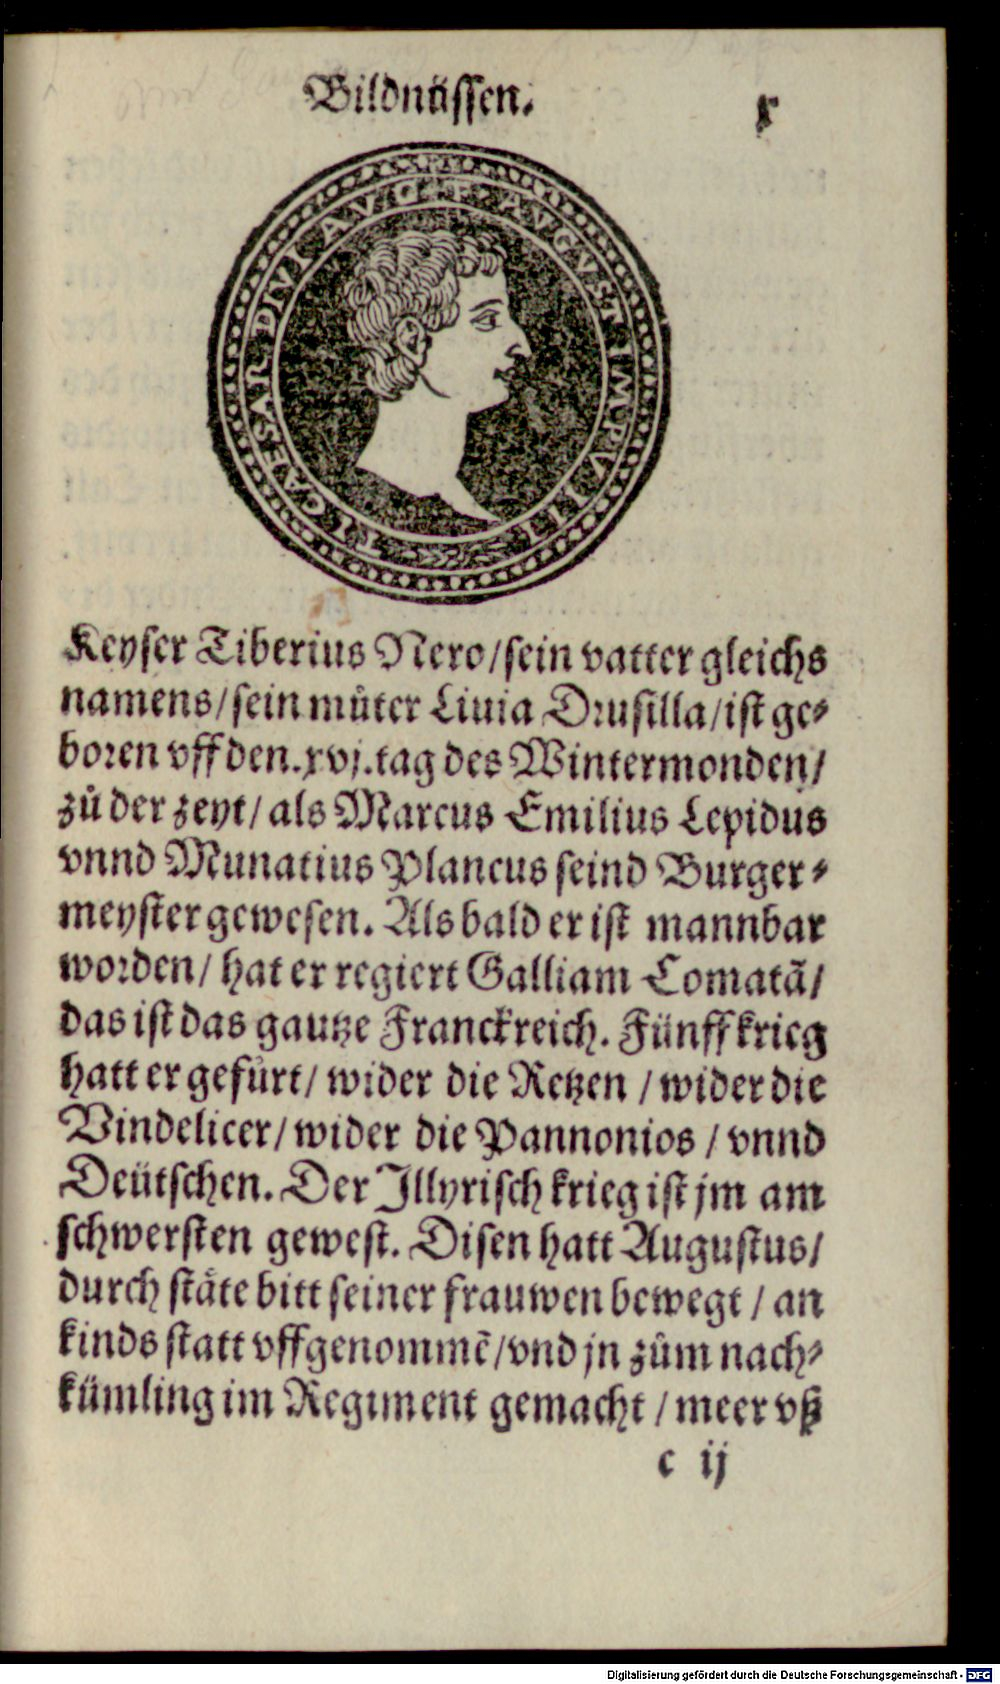 Bildnüssen. x
TI CAESAR DIVI AVG F AVGVST IMP VIII
Keyser Tiberius Nero/sein vatter gleichs
namens/sein můter Liuia Drusilla/ist ge⸗
boren vff den.xvj.tag des Wintermonden/
zů der zeyt/ als Marcus Emilius Lepidus
vnnd Munatius Plancus seind Burger⸗
meyster gewesen. Als bald er ist mannbar
worden/ hat er regiert Galliam Comatā/
das ist das gautze Franckreich. Fünff krieg
hatt er gefůrt/ wider die Retzen / wider die
Vindelicer/ wider die Pannonios / vnnd
Deütschen. Der Jllyrisch krieg ist jm am
schwersten gewest. Disen hatt Augustus/
durch stäte bitt seiner frauwen bewegt / an
kinds statt vffgenommē/vnd jn zům nach⸗
kümling im Regiment gemacht / meer vß
c ij
Digitalisierung gefördert durch die Deutsche Forschungsgemeinschaft - DFG